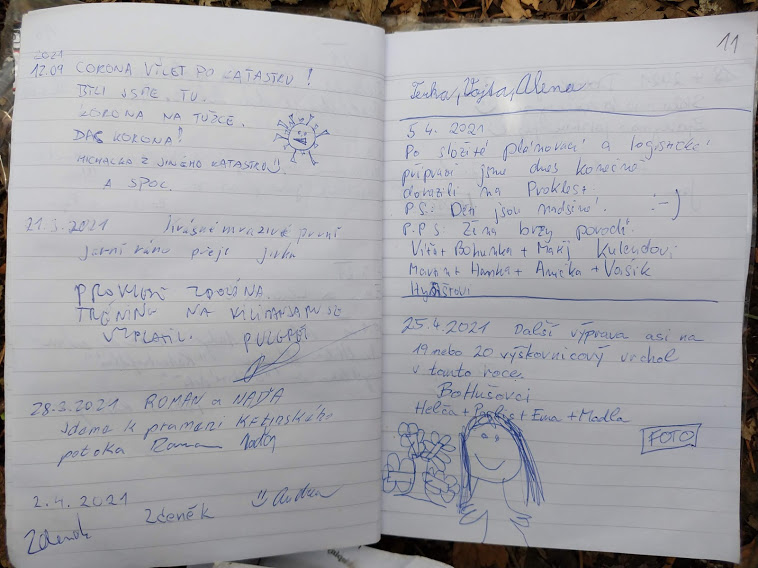 2021
12.09 CORONA VÝLET PO KATASTRU!
BYLI JSME TU.
KORONA NA TUŽCE.
DAŠ KORONA!
MICHALKA Z JINÉHO KATASTRU
A SPOL.
21.3.2021 Krásné mrazivé první
jarní ráno přeje Jirka
PROKLEST ZDOLÁNA.
TRÉNINK NA KILIMANJARO SE
VYPLATIL.
28.3.2021 ROMAN a NAĎA
jdeme k prameni Křtinského
potoka Roman Naďa
2.4.2021 Zdeněk Andrea
Zdeněk
11
Terka, Vojta, Alena
5 4. 2021
Po složité plánovací a logistické
přípravě jsme dnes konečně
dorazili na Proklest
P.S: Děti jsou nadšené! :-)
P.P.S: Žena brzy porodí!
Víťa + Bohunka + Matěj Kulendovi
Martin + Hanka + Anička + Vašík
25.4.2021 Další výprava asi na
19 nebo 20 výškovnicový vrchol
v tomto roce.
BoHušovci
Helča + + Ema + Madla
FOTO